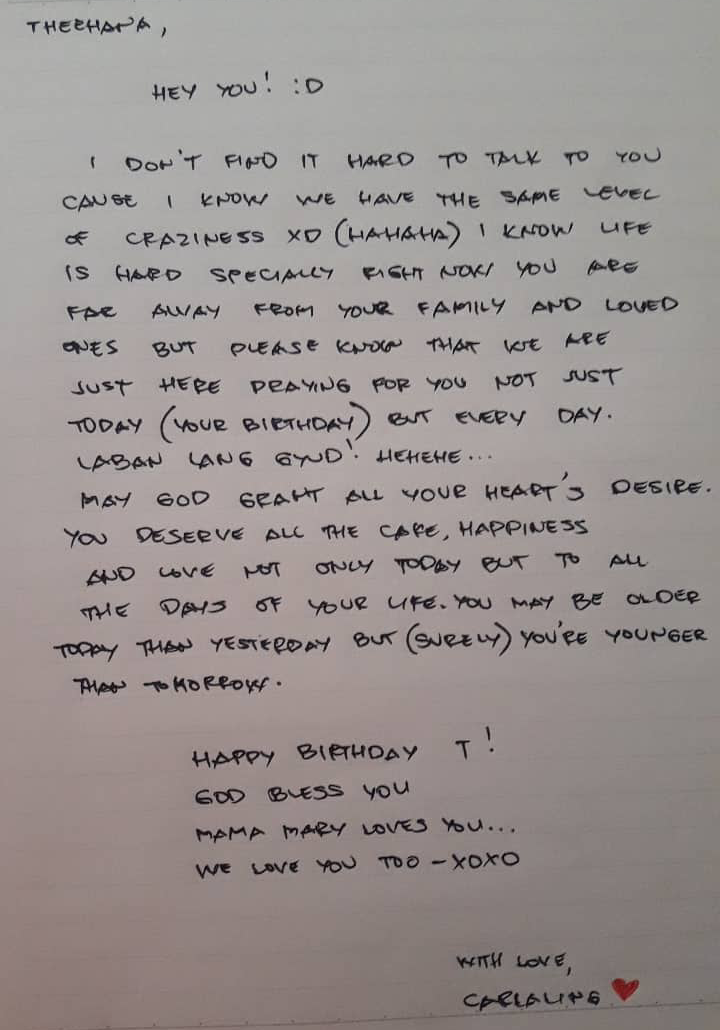 THEEHANA,
HEY YOU! :D
I DON'T FIND IT HARD TO TALK TO YOU
CAUSE I KNOW WE HAVE THE SAME LEVEL
OF CRAZINESS XD (HAHAHA) I KNOW LIFE
IS HARD SPECIALLY RIGHT NOW YOU ARE
FAR AWAY FROM YOUR FAMILY AND LOVED
ONES BUT PLEASE KNOW THAT WE ARE
JUST HERE PRAYING FOR YOU NOT JUST
TODAY (YOUR BIRTHDAY) BUT EVERY DAY.
LABAN LANG GYUD! HEHEHE...
MAY GOD GRANT ALL YOUR HEART'S DESIRE.
YOU DESERVE ALL THE CARE, HAPPINESS
AND LOVE NOT ONLY TODAY BUT TO ALL
THE DAYS OF YOUR LIFE. YOU MAY BE OLDER
TODAY THAN YESTERDAY BUT (SURELY) YOU'RE YOUNGER
THAN TOMORROW.
HAPPY BIRTHDAY T!
GOD BLESS YOU
MAMA MARY LOVES YOU...
WE LOVE YOU TOO - XOXO
WITH LOVE,
CARLALING ❤